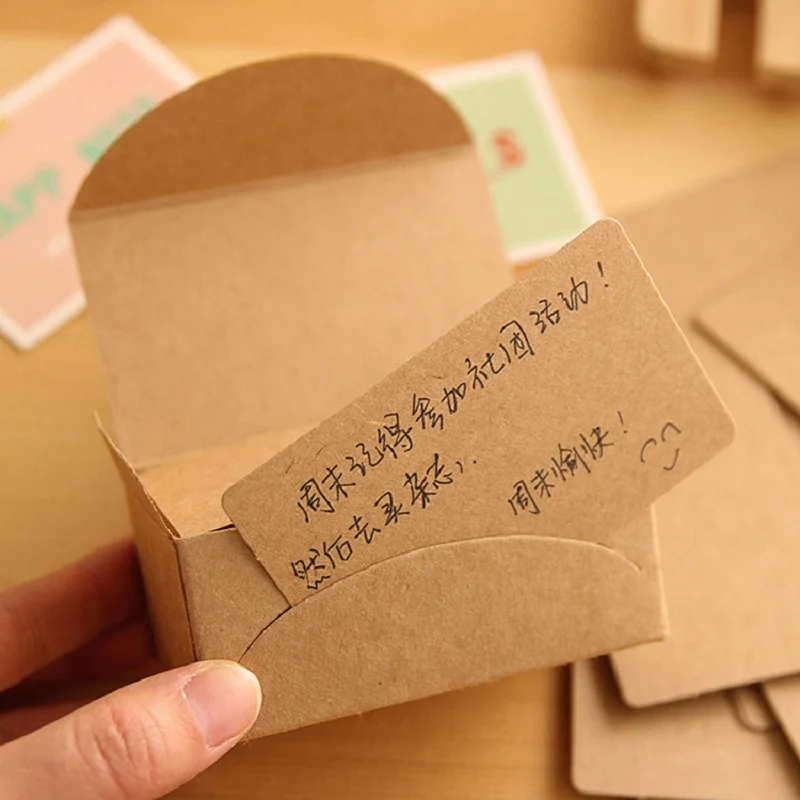 周末记得参加社团活动！
然后去买杂志，.
周末愉快！